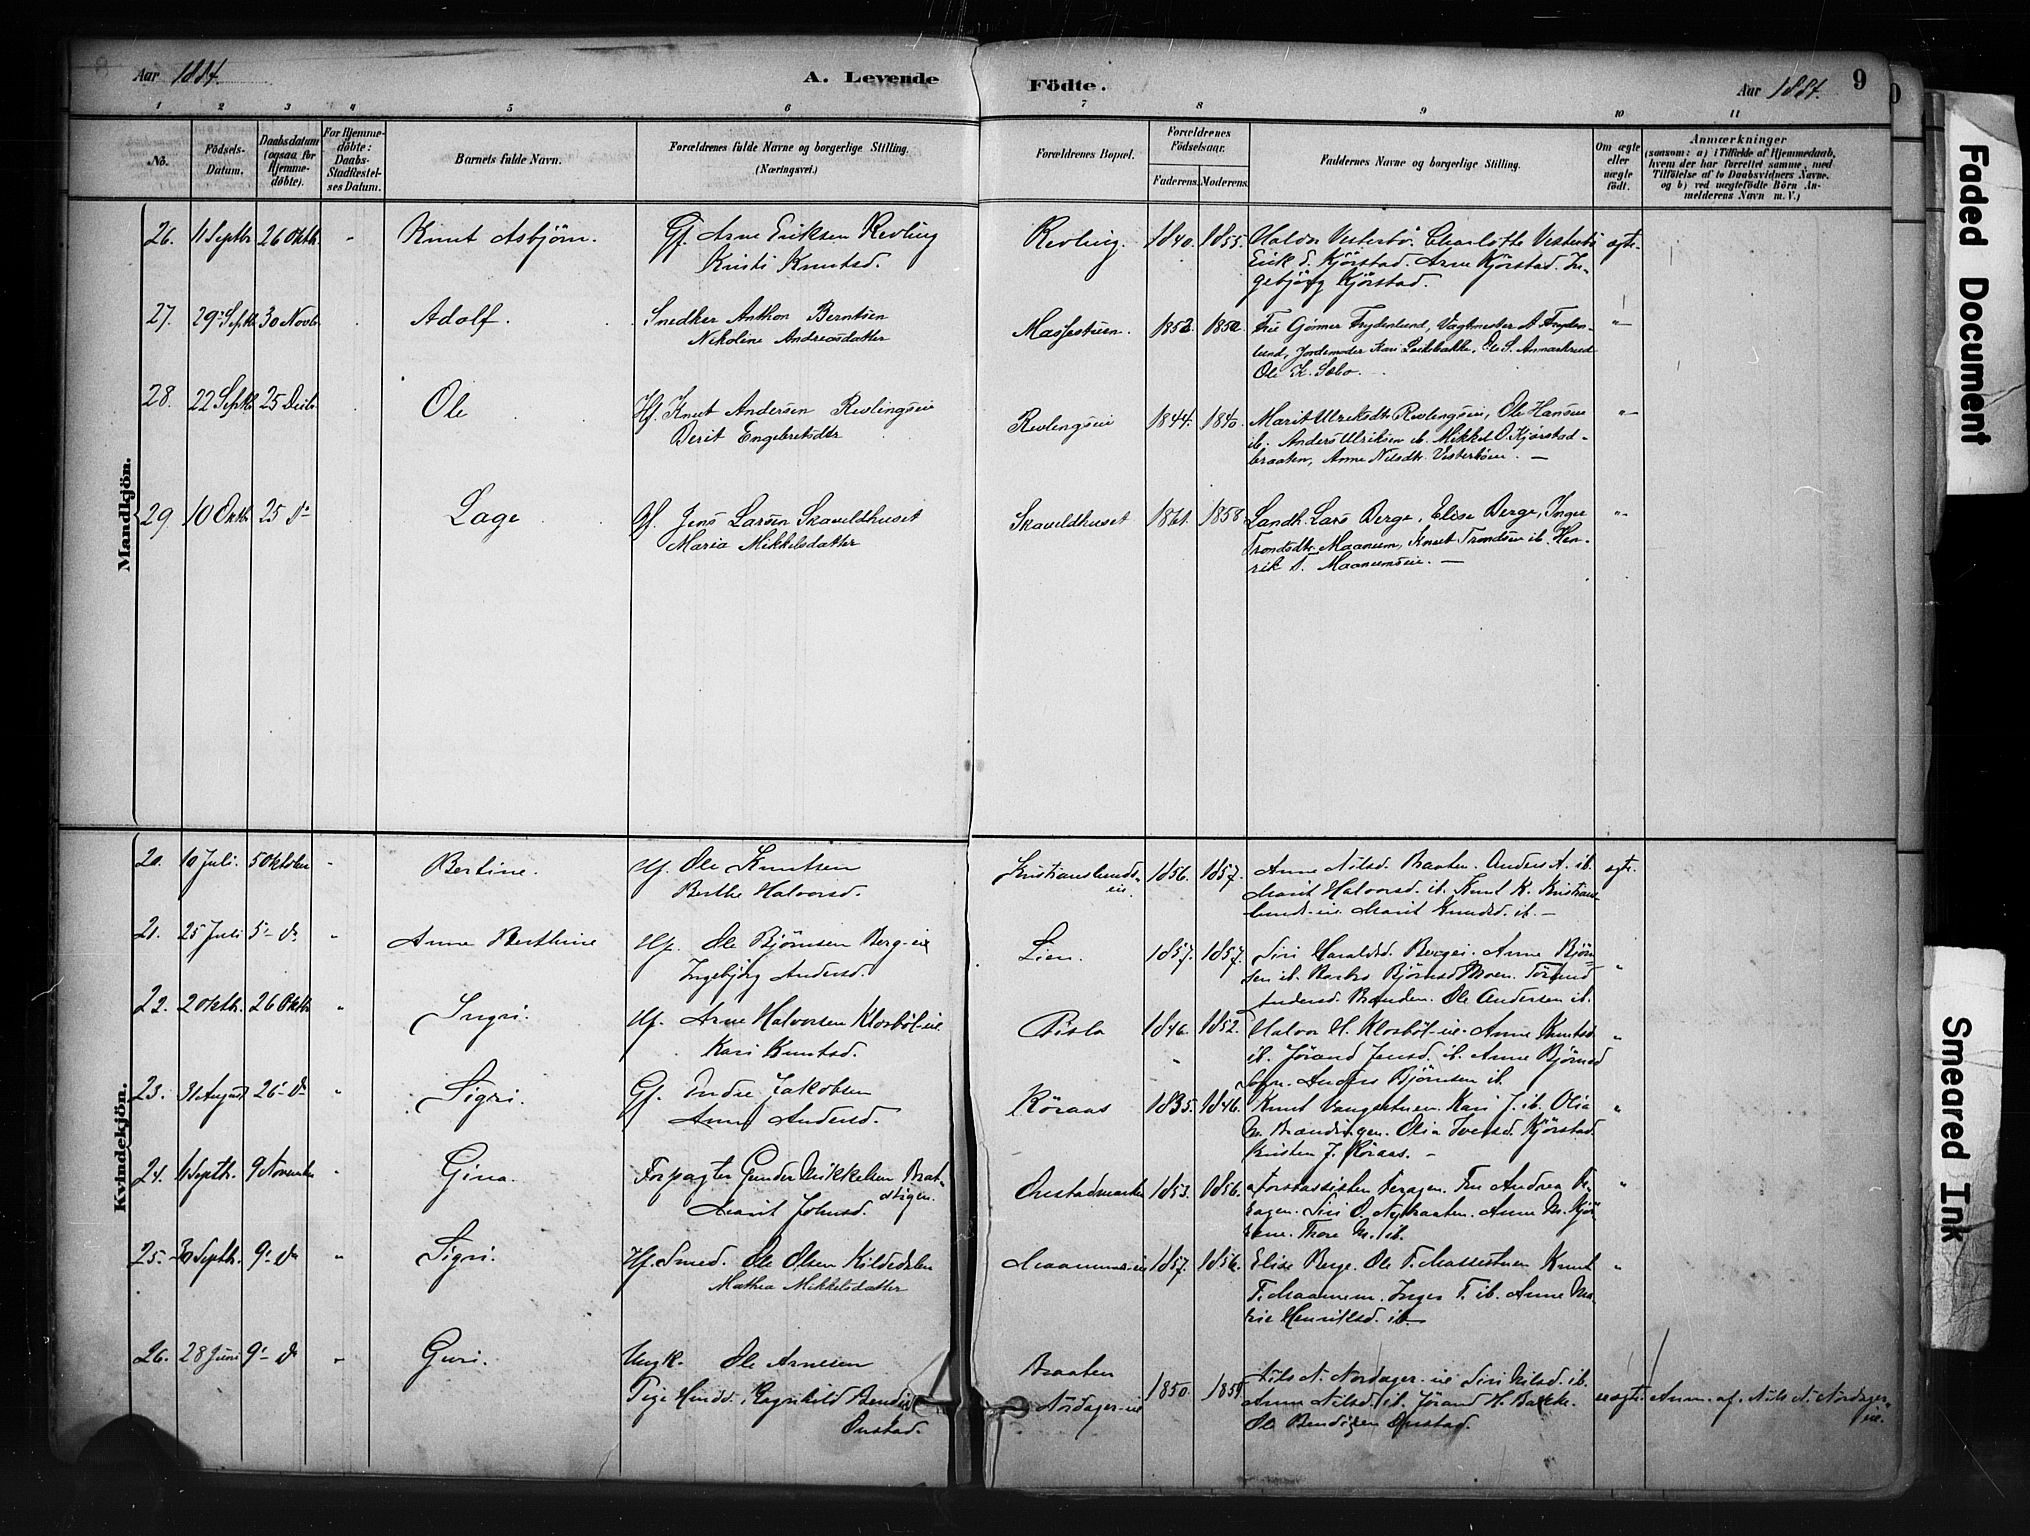 Aar 1884.
A. Levende
Födte.
Aar 1884.
9
1 2 3 4 5 6 7 8 9 10 11
No.
Födsels-
Datum.
Daabsdatum
(ogsaa for
Hjemme-
döbte).
For Hjemme-
döbte:
Daabs-
Stadfæstel-
ses Datum.
Barnets fulde Navn.
Forældrenes fulde Navne og borgerlige Stilling.
(Næringsvei.)
Forældrenes Bopæl.
Forældrenes
Födselsaar.
Faderens. Moderens.
Faddernes Navne og borgerlige Stilling.
Om ægte
eller
uægte
födt.
Anmærkninger
(saasom: a) i Tilfælde af Hjemmedaab,
hvem der har forrettet samme, med
Tilföielse af to Daabsvidners Navne.
og b) ved uægtefödte Börn An-
melderens Navn m. V.)
Mandkjön.
26. 11 Septbr 26 Oktbr. Knut Asbjørn. Gf. Arne Eriksen Revling
Kristi Knutsd.
Revling. 1840. 1855. Haldor Vesterbø. Charlotte Vesterbø
Erik S. Kjørstad. Arne Kjørstad. In-
gebjørg Kjørstad.
ægte.
27. 29 Septbr 30 Novbr Adolf. Snedker Anthon Berntsen
Nikoline Andreasdatter
Massestuen. 1852 1850 Frue Gjømer Frydenlund, Vagtmester A Fryden-
lund, Jordemoder Kari Lockebakke, Ole S. Anmarkrud
Ole K. Sæbo.
"
28. 22 Septbr 25 Decbr Ole Hf. Knut Andersen Revlingseie
Berit Engebretsdtr
Revlingseie 1844. 1840. Marit Ulriksdtr Revlingseie, Ole Hansen
ib. Anders Ulriksen ib. Mikkel O. Kjørstad-
braaten, Anne Nilsdtr. Vesterbøeie. —
"
29 10 Oktbr 25 do Lage Gf. Jens Larsen Skaveldhuset
Maria Mikkelsdatter
Skaveldhuset 1861. 1858 Landh. Lars Berge, Elise Berge, Inger
Trondsdtr. Maanum, Knut Trondsen ib. Hen-
rik T. Maanumseie. —
"
Kvindekjön.
20. 10 Juli. 5 Oktober Bertine. Hf. Ole Knutsen
Berthe Halvorsd.
Kristianslunds-
eie. 1856. 1857. Anne Nilsd. Braaten. Anders A. ib.
Marit Halvorsd. ib. Knut K. Kristians-
lunds-eie. Marit Knudsd. ib. —
ægte.
21. 25 Juli 5- do " Anne Berthine Hf. Ole Bjørnsen Berg-eie
Ingebjørg Andersd.
Lien. 1857. 1857. Siri Haraldsd. Bergei. Anne Bjørn-
sen ib. Barbro Bjørnsd Moen. Tørand
Andersd. Branden. Ole Andersen ib.
"
22. 2 Oktbr. 26 Oktbr " Ingri. Hf. Arne Halvorsen Klosbøl-eie
Kari Knutsd.
Pisla 1846. 1852. Halvor H. Klosbøl-eie. Anne Knutsd.
ib. Jørand Jensd. ib. Anne Bjørnsd
Sogn. Anders Bjørnsen ib.
"
23. 31 August 26- do " Sigri. Gf. Endre Jakobsen
Anne Andersd.
Røraas 1835. 1846. Knut Vangestuen. Kari J. ib. Olia
M. Brændingen. Olia Iversd. Kjørstad
Kristen J. Røraas. —
"
24. 1 Septbr. 9 November Gina. Forpagter Gunder Mikkelsen Brat-
stigen.
Marit Johnsd.
Onstadmarken 1853. 1856. Forstassistent Feragen. Fru Andrea Fe-
ragen. Siri O. Nybraaten. Anne M. Bjør-
Thore M. ib.
"
25. 30 Septbr. 9- do " Sigri. Hf. Smed. Ole Olsen Kildedalen
Mathea Mikkelsdatter
Maanumseie 1857. 1856. Elise Berge. Ole T. Massestuen Knut
T. Maanum. Inger T. ib. Anne Ma-
rie Henriksd. ib.
"
26. 28 Juni 9- do Guri. Ungk. Ole Arnesen
Pige Ragnhild Bendiks
Onstad.
Braaten
Nordager-eie 1850. 1859. Nils N. Nordager-eie Siri Nilsd. ib.
Anne Nilsd. ib. Jørand H. Bakke.
Ole Bendiksen Onstad.
uægte. Anm. af. Nils N. Nordager-
eie.
Faded Document
Smeared Ink